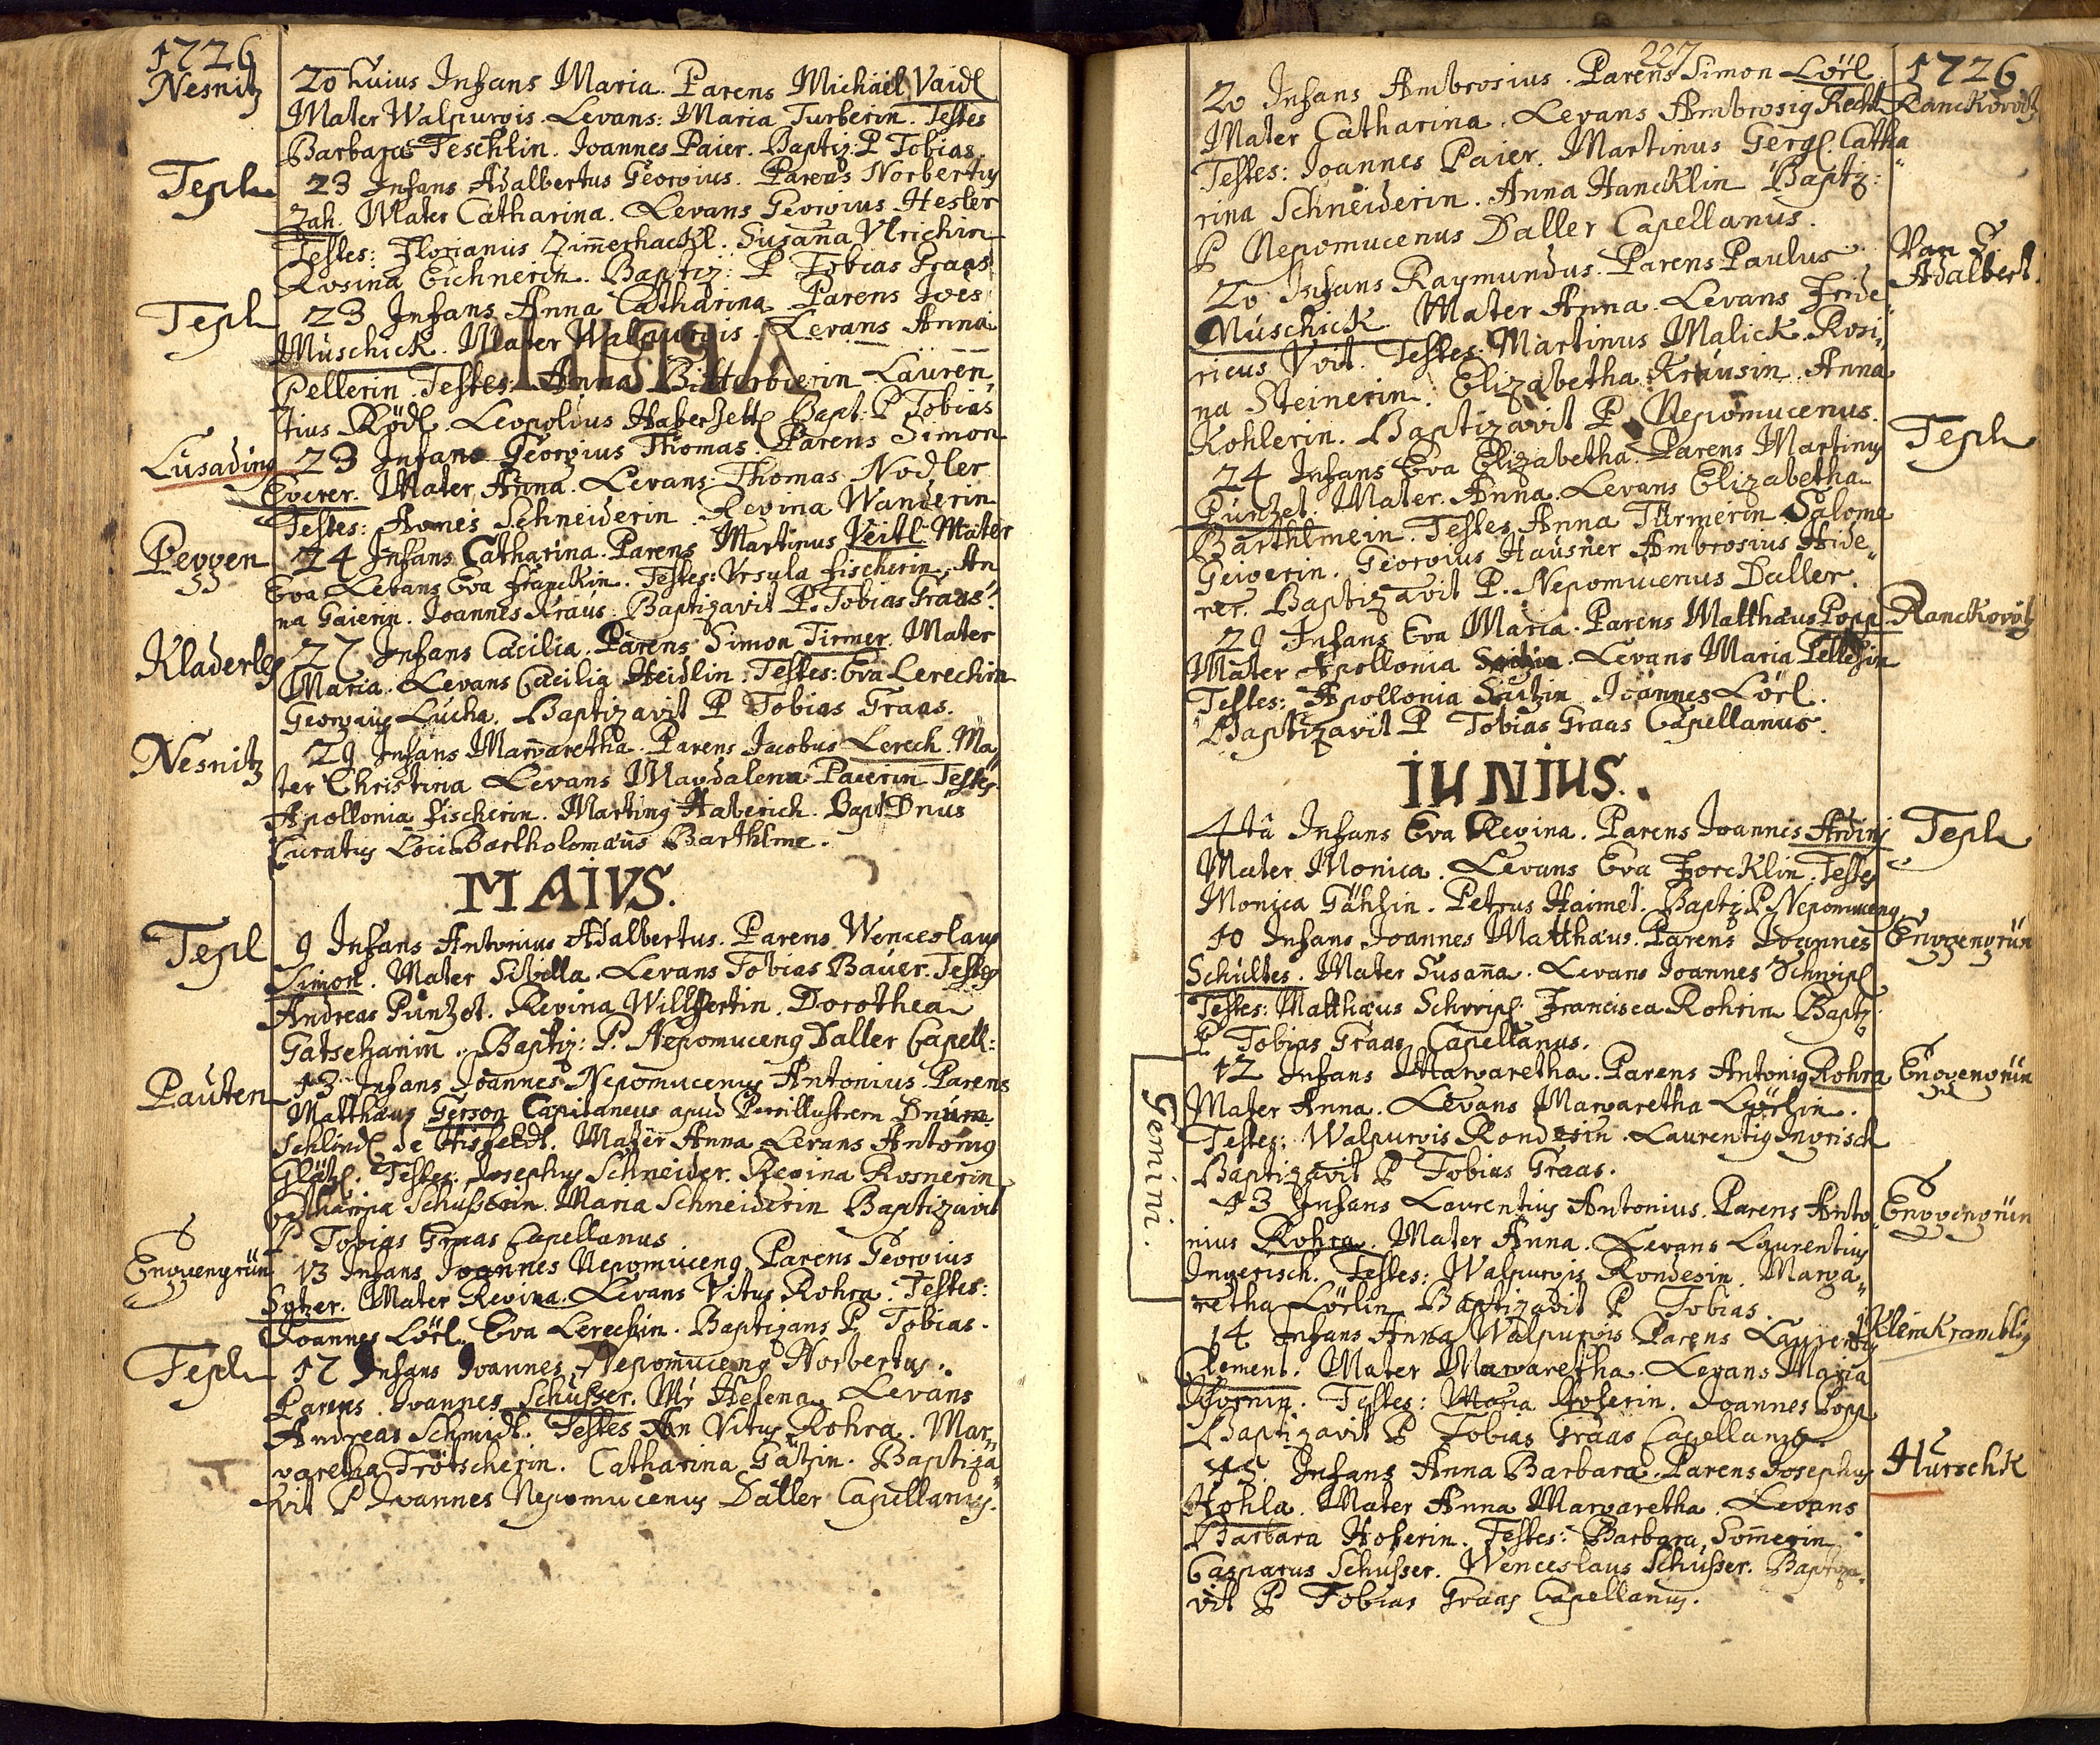 1726
Nesnitz
20 huius Infans Maria. Parens Michael Vaidl
Mater Walpurgis. Levans: Maria Turberin. Testes
Barbara Teschlin. Joannes Paier. Baptiz: P Tobias.
Tepl
23 Infans Adalbertus Georgius. Parens Norbertus
Zak. Mater Catharina. Levans Georgius Hesler
Testes: Florianus Zimerhackl. Susana Ulrichin
Rosina Eichnerin. Baptiz: P Tobias Graas
Tepl
23 Infans Anna Catharina Parens Joes
Muschick. Mater Walpurgis. Levans Anna
Pellerin. Testes: Anna Bitterbierin Lauren,
tius Rödl. Leopoldus Haberzettl Bapt: P Tobias
Lusading
23 Infans Georgius Thomas. Parens Simon
Egerer. Mater Anna. Levans: Thomas Nodler
Testes: Agnes Schneiderin Regina Wanderin
Peggen
24 Infans Catharina. Parens Martinus Veitl. Mater
Eva Levans Eva Franckin. Testes: Ursula Fischerin. An
na Gaierin. Joannes Kraus. Baptizavit P. Tobias Graas.
Kladerles
27 Infans Cacilia. Parens Simon Tirmer. Mater
Maria. Levans Cacilia Heidlin. Testes: Eva Lerechin
Georgius Lucha. Baptizavit P Tobias Graas.
Nesnitz
29 Infans Margaretha. Parens Jacobus Lerech. Ma
ter Christina Levans Magdalena Paierin Testes
Apollonia Fischerin. Martinus Haberich. Bapt Dnus
Curatus Loci Bartholomaus Barthlme.
MAIVS.
Tepl
9 Infans Antonius Adalbertus. Parens Wenceslaus
Simon. Mater Sibella. Levans Tobias Bauer. Testes
Andreas Punzet. Regina Willfertin. Dorothea
Gatschanin. Baptiz: P. Nepomucenus Daller Capell:
Pauten
13 Infans Joannes Nepomucenus Antonius. Parens
Matthaus Gerson Capitaneus apud Perillustrem Dnum
Schlindl de Hisfeldt. Mater Anna Levans Antonius
Glätzl. Testes: Josephus Schneider. Regina Rosnerin
Catharina Schusserin. Maria Schneiderin Baptizavit
P Tobias Graas Capellanus
Enggengrün
13 Infans Joannes Nepomucenus. Parens Georgius
Mater Regina. Levans Vitus Rohra. Testes:
Joannes Lörl. Eva Lerechin. Baptizans P. Tobias.
Tepl
17 Infans Joannes Nepomucenus Norbertus.
Parens Joannes Schusser. Mr Helena. Levans
Andreas Schmidt. Testes Vitus Rohra. Mar,
garetha Trötscherin. Catharina Gatzin. Baptiza
vit P Joannes Nepomucenus Daller Capellanus.
227
1726
Ranckorotz
20 Infans Ambrosius. Parens Simon Lörl
Mater Catharina. Levans Ambrosius Recht
Testes: Joannes Paier. Martinus Gergl. Catha
rina Schneiderin. Anna Hancklin Baptiz:
P Nepomucenus Daller Capellanus.
Adalbert.
20 Infans Raymundus. Parens Paulus
Muschick. Mater Anna. Levans Fride
ricus Voit. Testes: Martinus Malick. Rosi,
na Steinerin. Elizabetha Krausin. Anna
Kohlerin. Baptizavit P. Nepomucenus.
Tepl
24 Infans Eva Elizabetha. Parens Martinus
Punzet. Mater. Anna. Levans Elizabetha
Barthlmein. Testes Anna Türmerin. Salome
Geigerin. Georgius Hausner Ambrosius Hide
rer. Baptizavit P. Nepomucenus Daller.
Ranckorotz
29 Infans Eva Maria. Parens Matthaus Popp
Mater Apollonia. Levans Maria
Testes: Apollonia Joannes Lörl.
Baptizavit P Tobias Graas Capellanus.
IUNIUS.
Tepl
4ta Infans Eva Regina. Parens Joannes
Mater Monica. Levans Eva Forcklin. Testes
Monica Petrus Haimel. Baptiz P. Nepomucenus
Enggengrün
10 Infans Joannes Matthaus. Parens Joannes
Schultes. Mater Susana. Levans Joannes Schripl
Testes: Matthaus Schripl Francisca Rohrin Baptz
P Tobias Graas Capellanus.
Gemini.
Enggengrün
12 Infans Margaretha. Parens Antonius Rohra
Mater Anna. Levans Margaretha Lörlin.
Testes: Walpurgis Rondesin. Laurentius Ingrisch
Baptizavit P Tobias Graas.
Enggengrün
13 Infans Laurentius Antonius. Parens Anto
nius Rohra. Mater Anna. Levans Laurentius
Ingerisch. Testes: Walpurgis Rondesin. Marga,
retha Lörlin Baptizavit P Tobias.
Klein Kramblig
14 Infans Anna Walpurgis Parens Laurentius
Clement. Mater Margaretha. Levans Maria
Testes: Maria Hoferin. Joannes Popp
Baptizavit P Tobias Graas Capellanus.
Hurschk
15. Infans Anna Barbara. Parens Josephus
Kohla. Mater Anna Margaretha. Levans
Barbara Hoferin. Testes: Barbara Somerin.
Casparus Schusser. Wenceslaus Schusser. Baptiza,
vit P Tobias Graas Capellanus.